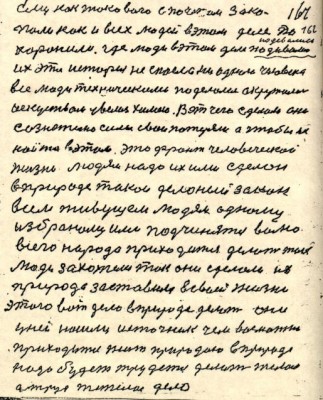 ему как такового с почетом зако- 167
пали как и всех людей в этом деле 162
хоронили. где люди в этом деле подевались
их эта история не спасла ни одного человека
все люди технические поделали окружили
искусством ввели химию. Вот чего сделали они
сознательно силы свои потеряли а чтобы их
найти в этом. это гарант человеческой
жизни людям надо их или сделан
в природе такой деловый закон
всем живущем людям одному
избраному или подчинятся волю
всего народа приходится делать такой
люди захотели так они сделали их
природа заставила в своей жизни
этого вот дела в природе делать они
у ней нашли источник чем возможно
приходится жить природою в природе
надо будет трудится делать тяжелое
а труд тяжелое дело